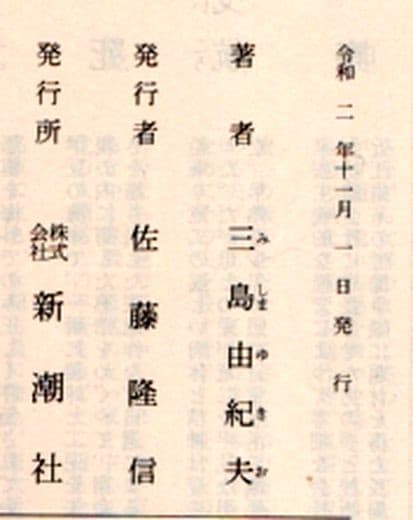 令和二年十一月一日発行
著者 三島由紀夫
みしまゆきお
発行者 佐藤隆信
発行所 株式会社 新潮社